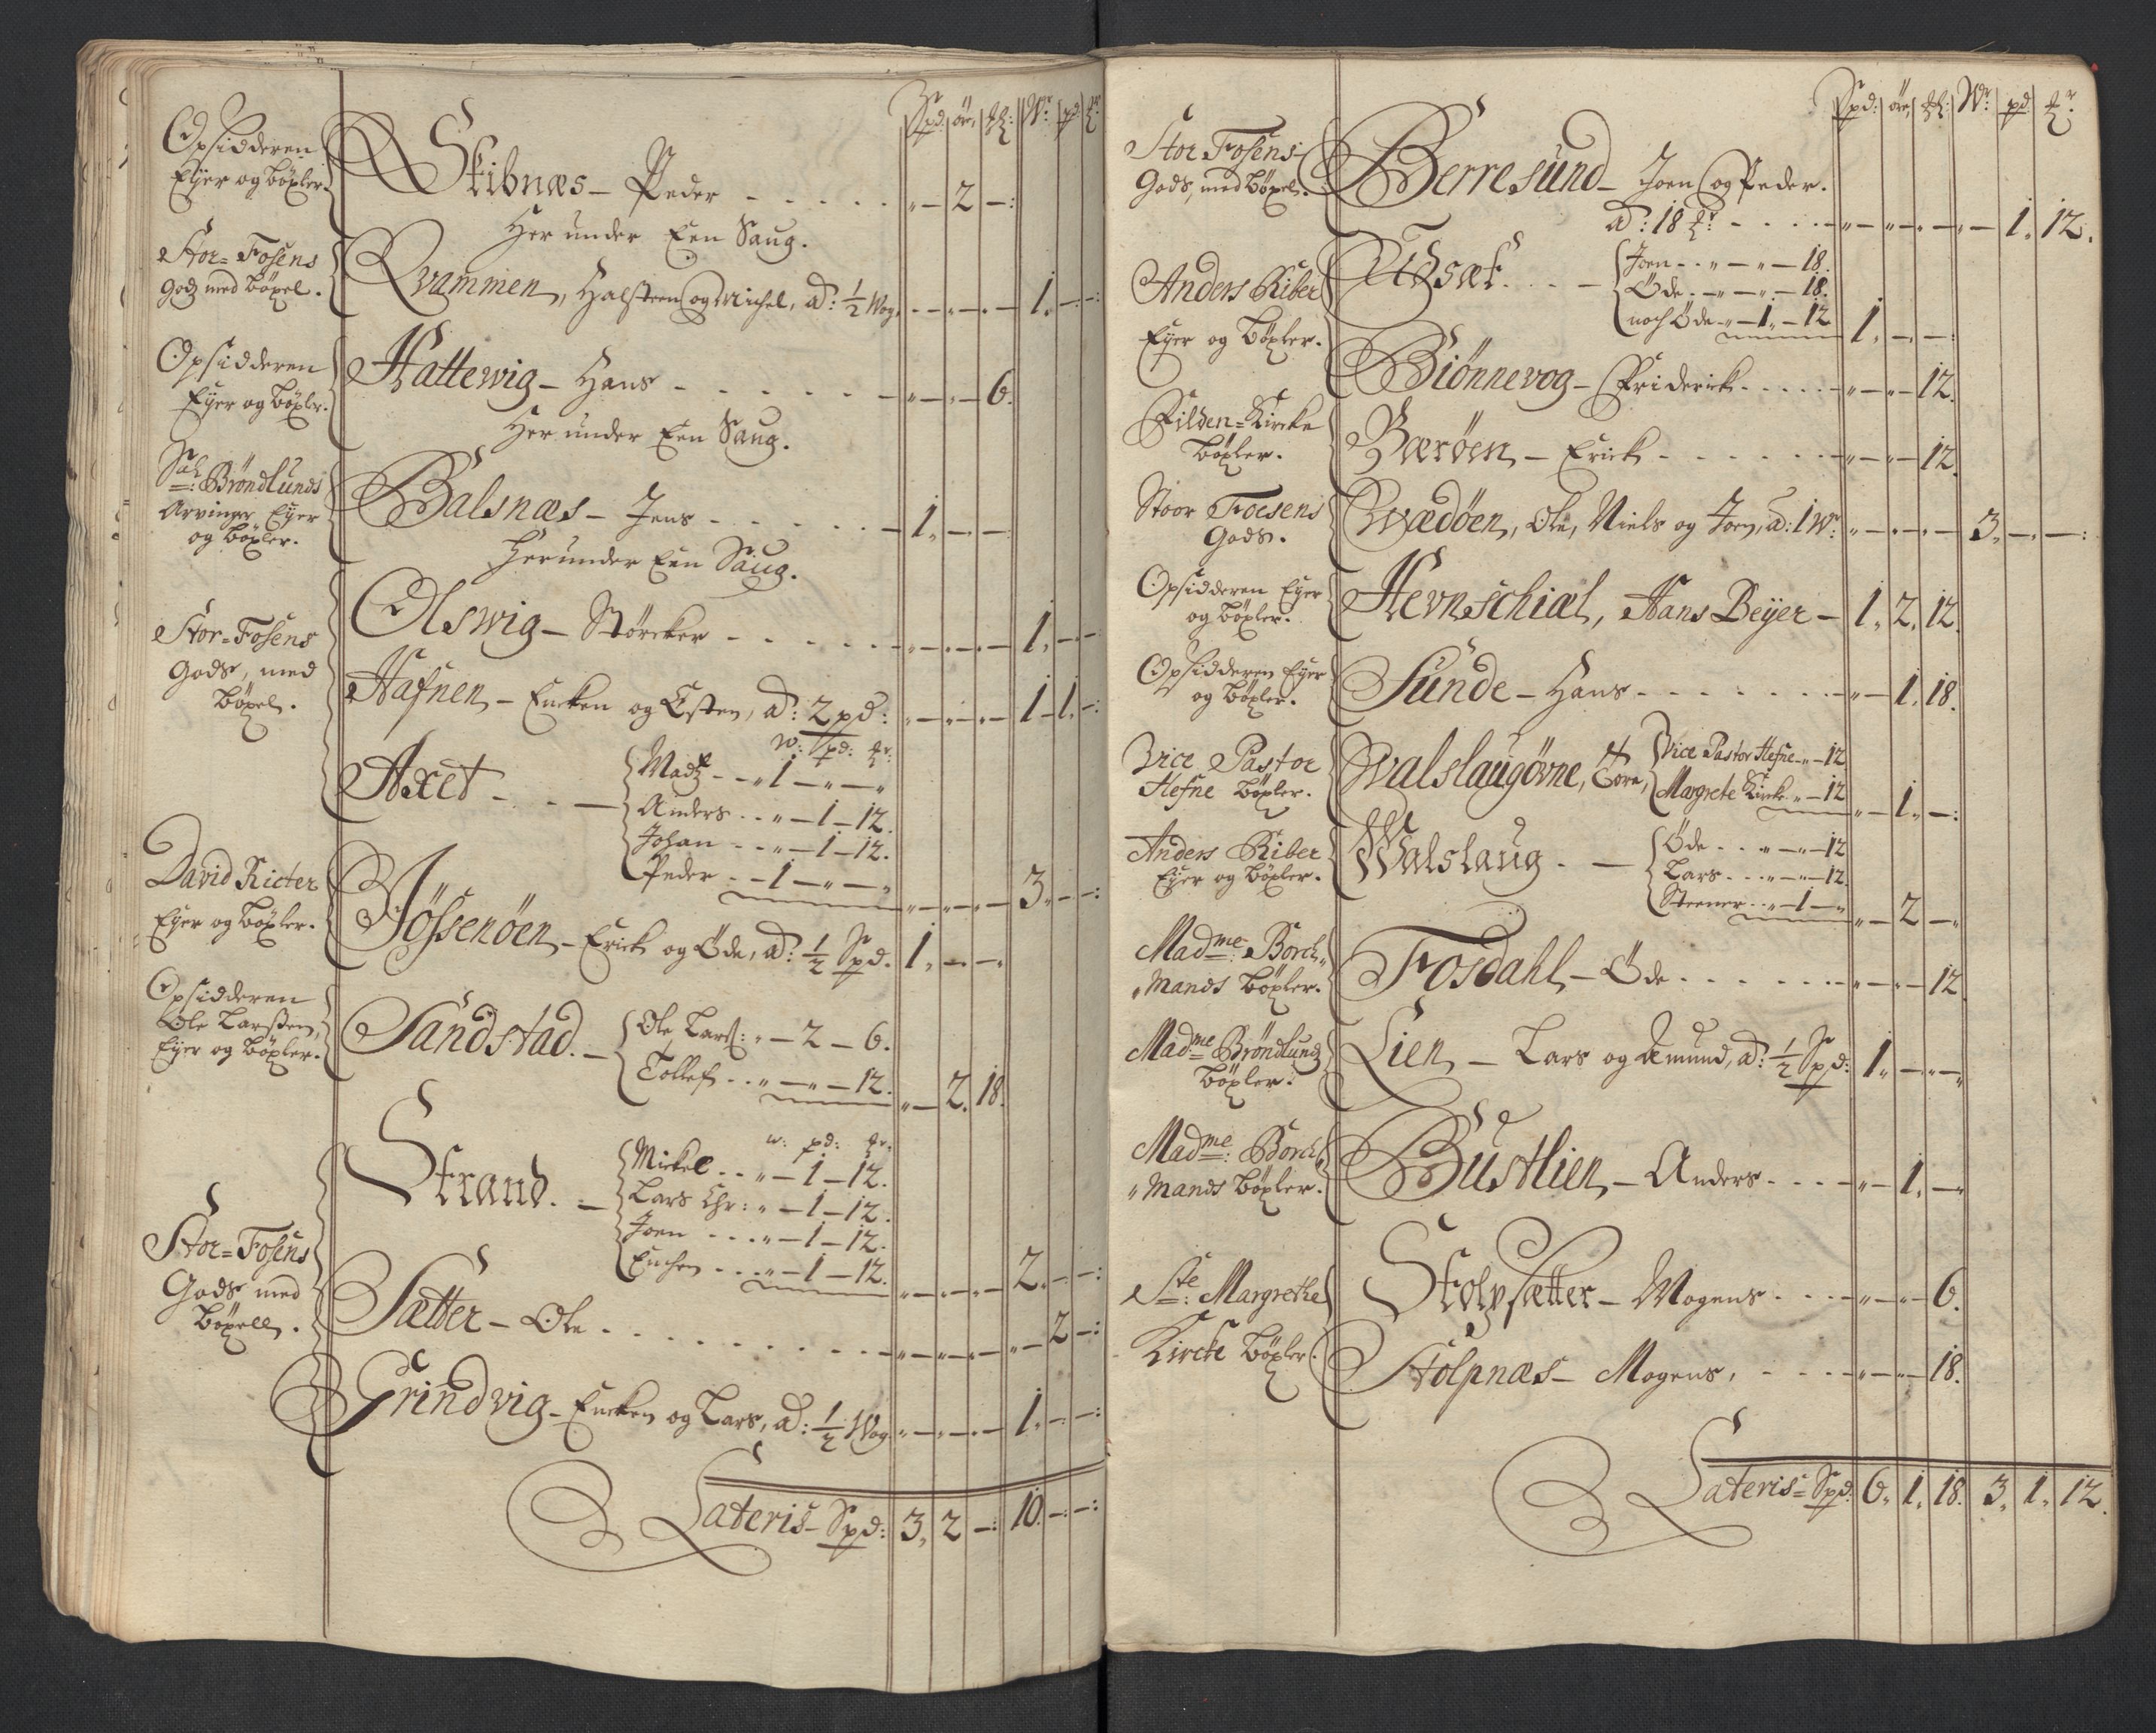 Spd: öre, ſk: W: pd: ℔r:
Opsidderen
Eÿer og böxler.
Skibnæs – Peder - - - - - " – 2 – :
Her under Een Saug.
Stor = Fosens
Godz med böxel.
Qvammen, Halsteen og Michel, ad: 1/2 Wog. " – " – " – 1. – – :
Opsidderen
Eÿer og böxler.
Hattewig – Hans - - - - - " – " – 6.
Her under Een Saug.
Sal: Bröndlunds
Arvinger Eÿer
og böxler.
Balsnæs – Jens - - - - - 1. – –
Her under Een Saug.
Stor = Fosens
Gods, med
böxel.
Olswig – Störcker - - - - - " – " – " – 1. – –
Hafnen – Encken og Esten, ad: 2 pd: " – " – " – 1 – 1. – :
W: Spd: ℔r:
Axet - - - Madz - - " 1 – " – "
Anders - - " – 1 – 12.
Johan - - " – 1 – 12.
Peder - - 1 – " – " " – " – " – 3. – – :
David Ricter
Eÿer og böxler.
Jössenöen – Erick og Öde, ad: 1/2 Spd. 1. – –
Opsidderen
Ole Larsen,
Eÿer og böxler.
Sandstad. – Ole Lars: " – 2 – 6.
Tollef - - " – " – 12. " – 2. 18.
w: pd: ℔r:
Strand. – Mickel - - " – 1 – 12.
Lars Chr: " – 1 – 12.
Joen - - - " – 1 – 12.
Enchen - - - " – 1 – 12. " – " – " – 2. – – :
Stor = Fosens
Gods med
böxell.
Sætter – Ole - - - - - " – " – " – " – 2 – :
Grindvig – Encken og Lars, ad: 1/2 Wog " – " – " – 1. – – :
Lateris – Spd: 3. 2 – : 10. – – :
Spd: öre, ſk: W: pd ℔r:
Stor Fosens
Gods, med böxel.
Berresund – Joen og Peder.
ad: 18 ℔r: - - - " – " – " – " – 1. 12.
Anders Riber
Eÿer og böxler.
Joen - - " – " – 18.
Öde - - " – " – 18.
noch Öde – " – 1. – 12 1. – –
Biönnevog – Friderick - - - - " – " – 12.
Filden = Kircke
böxler.
Bæröen – Erick - - - - - " – " – 12.
Stoor Foesens
Gods.
Qvædöen, Ole, Niels og Joen, ad: 1 W: " – " – " – 3. – – :
Opsidderen Eÿer
og böxler.
Hevnschiæl, Hans Beÿer – 1. 2. 12.
Opsidderen Eÿer
og böxler.
Sunde – Hans - - - - - " – 1. 18.
Vice Pastor
Hefne böxler.
Walslaugövne, Tore, Vice Pastor Hefne – " – 12
Margrete Kirche " – 12 " – 1. – :
Anders Riber
Eÿer og böxler.
Walslaug. – Öde - - " – " – 12
Lars - - - " – " – 12.
Steener - - " – 1 – " " – 2 – "
Madme: Borch"
"mands böxler.
Fosdahl – Öde - - - - - " – " – 12.
Madme: Bröndlundz
böxler.
Lien – Lars og Amund, ad: 1/2 Spd: 1. – " – "
Madme: Borch"
"mands böxler.
Bustlien – Anders - - - " – 1. – "
Ste: Margrethe
Kircke böxler.
Stolpsætter – Mogens - - - " – " – 6.
Stolpnæs – Mogens, - - - " – " – 18.
Lateris = Spd: 6. 1. 18. 3. 1. 12.